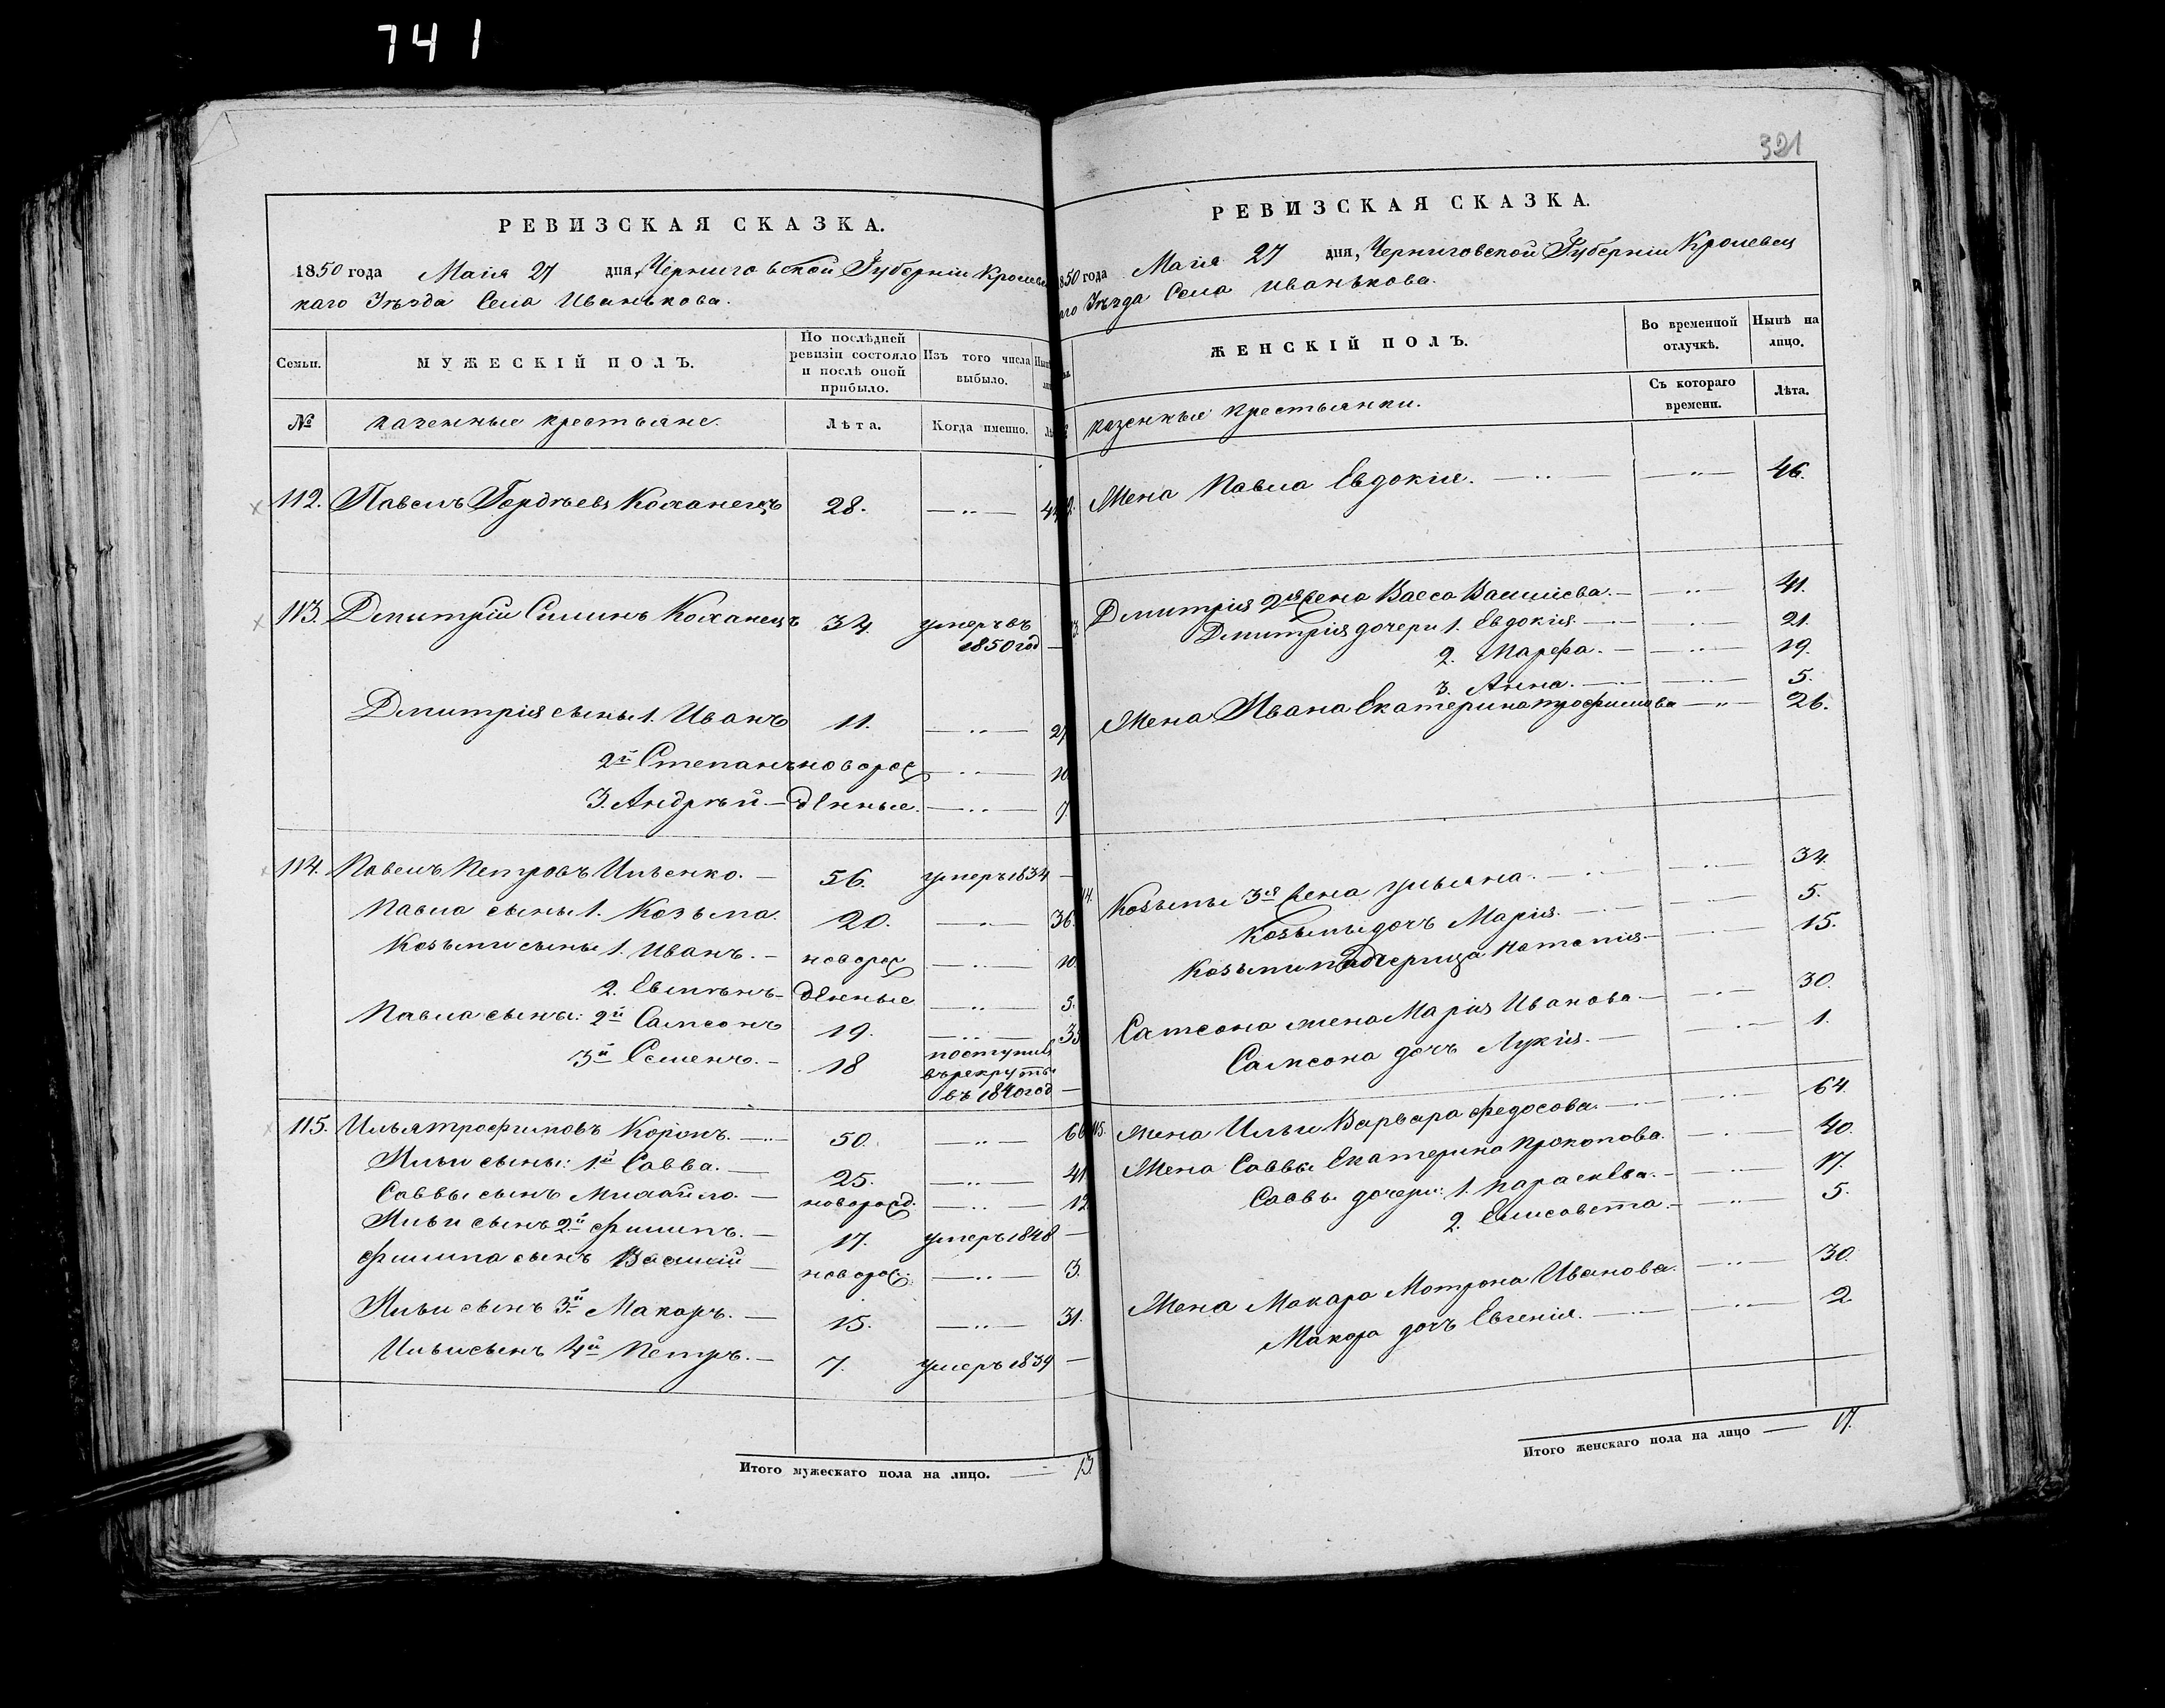 741
РЕВИЗСКАЯ СКАЗКА.
1850 года Маія 27 дня, Черниговской Губерніи Кролевец
каго Уѣзда Села Иванькова.
Семьи.
МУЖЕСКІЙ ПОЛЪ.
По послѣдней ревизіи состояло и послѣ оной прибыло.
Изъ того числа выбыло.
№
казенные крестьяне.
Лѣта.
Когда именно.
112. Павелъ Гордѣевъ Коханецъ 28. 44
113. Дмитрій Силинъ Коханецъ 34. умеръ въ
1850 год —
Дмитрія сыны 1. Иванъ 11. 27
2й Степанъ новорож 10
3. Андрѣй — денные. 7.
114. Павелъ Петровъ Ильенко. — 56. умеръ 1834 —
Павла сыны 1. Козьма. 20. 36.
Козьми сыны 1. Иванъ. — новорож 10.
2. Емельянъ — денные 5.
Павла сыны: 2й Самсонъ 19. 35
3й Семенъ. — 18 поступилъ
въ рекруты
въ 1840 год —
115. Илья Трофимовъ Коропъ. — 50. 66
Ильи сыны: 1й Савва. — 25. 41
Саввы сынъ Михайло. — новорожд. 12
Ильи сынъ 2й Филипъ. — 17. умеръ 1848 —
Филипа сынъ Василій — новорож. 3.
Ильи сынъ 3й Макаръ. — 15. 31.
Ильи сынъ 4й Петръ. — 7. умеръ 1839 —
Итого мужескаго пола на лицо. — 13
321
РЕВИЗСКАЯ СКАЗКА.
850 года Маія 27 дня, Черниговской Губерніи Кролевец
го Уѣзда Села Иванькова.
ЖЕНСКІЙ ПОЛЪ.
Во временной отлучкѣ.
Нынѣ на лицо.
казенные крестьянки.
Съ котораго времени.
Лѣта.
Жена Павла Евдокія. 46.
Дмитрія 2я жена Васса Васильева. — 41.
Дмитрія дочери 1. Евдокія. 21.
2. Марфа. — 19.
3. Анна. 5.
Жена Ивана Екатерина Трофимова 26.
Козьмы 3я жена Ульяна. 34.
Козьмы дочъ Марія. 5.
Козьми падчерица Наталія — 15.
Самсона жена Марія Иванова — 30.
Самсона дочъ Лукія. — 1.
115. Жена Ильи Варвара Федосова. 64.
Жена Саввы Екатерина Прокопова. 40.
Саввы дочери: 1. Параскева. — 17.
2. Елисавета. — 5.
Жена Макара Мотрона Иванова. 30.
Макара дочъ Евгенія. 2.
Итого женскаго пола на лицо — 17.